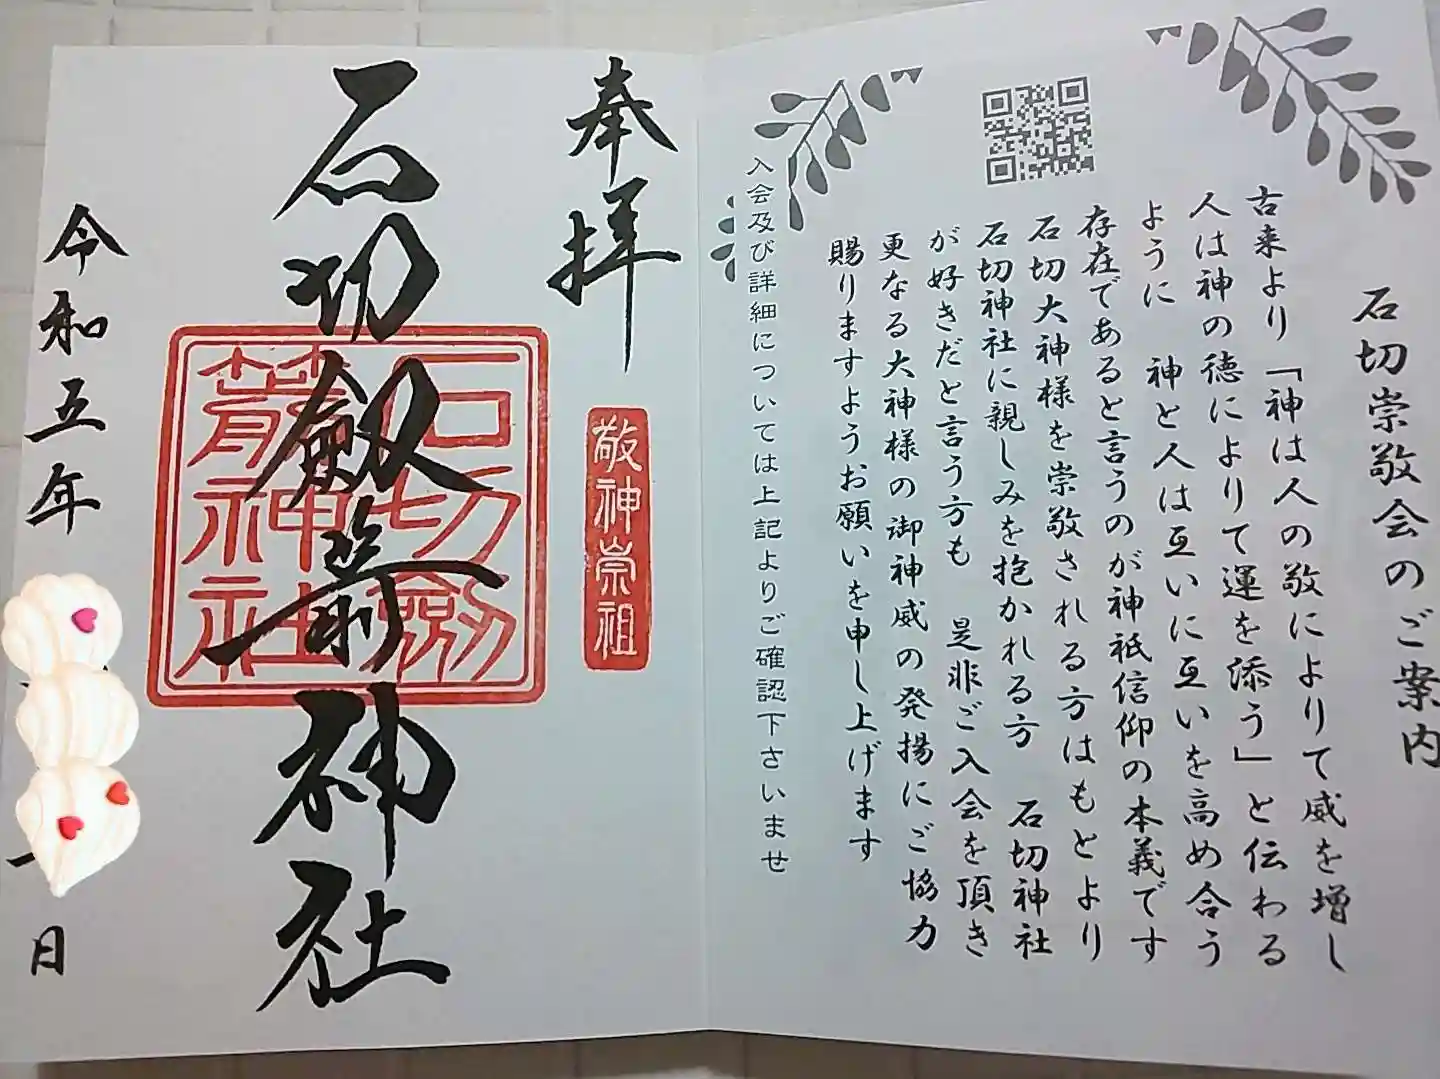 石切崇敬会のご案内
古来より「神は人の敬によりて威を増し
人は神の徳によりて運を添う」と伝わる
ように　神と人は互いに互いを高め合う
存在であると言うのが神祇信仰の本義です
石切大神様を崇敬される方はもとより
石切神社に親しみを抱かれる方　石切神社
が好きだと言う方も　是非ご入会を頂き
更なる大神様の御神威の発揚にご協力
賜りますようお願いを申し上げます
入会及び詳細については上記よりご確認下さいませ
奉拝
敬神崇祖
石切劔箭神社
石切劔
箭神社
令和五年
日